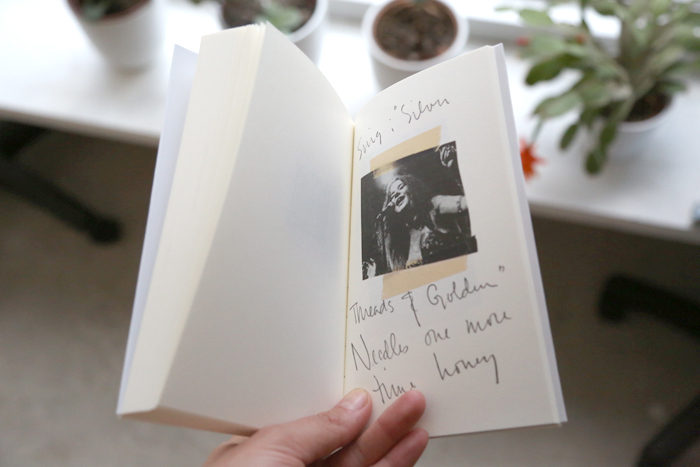 Sing : "Silver
Threads & Golden"
Needles one more
time honey